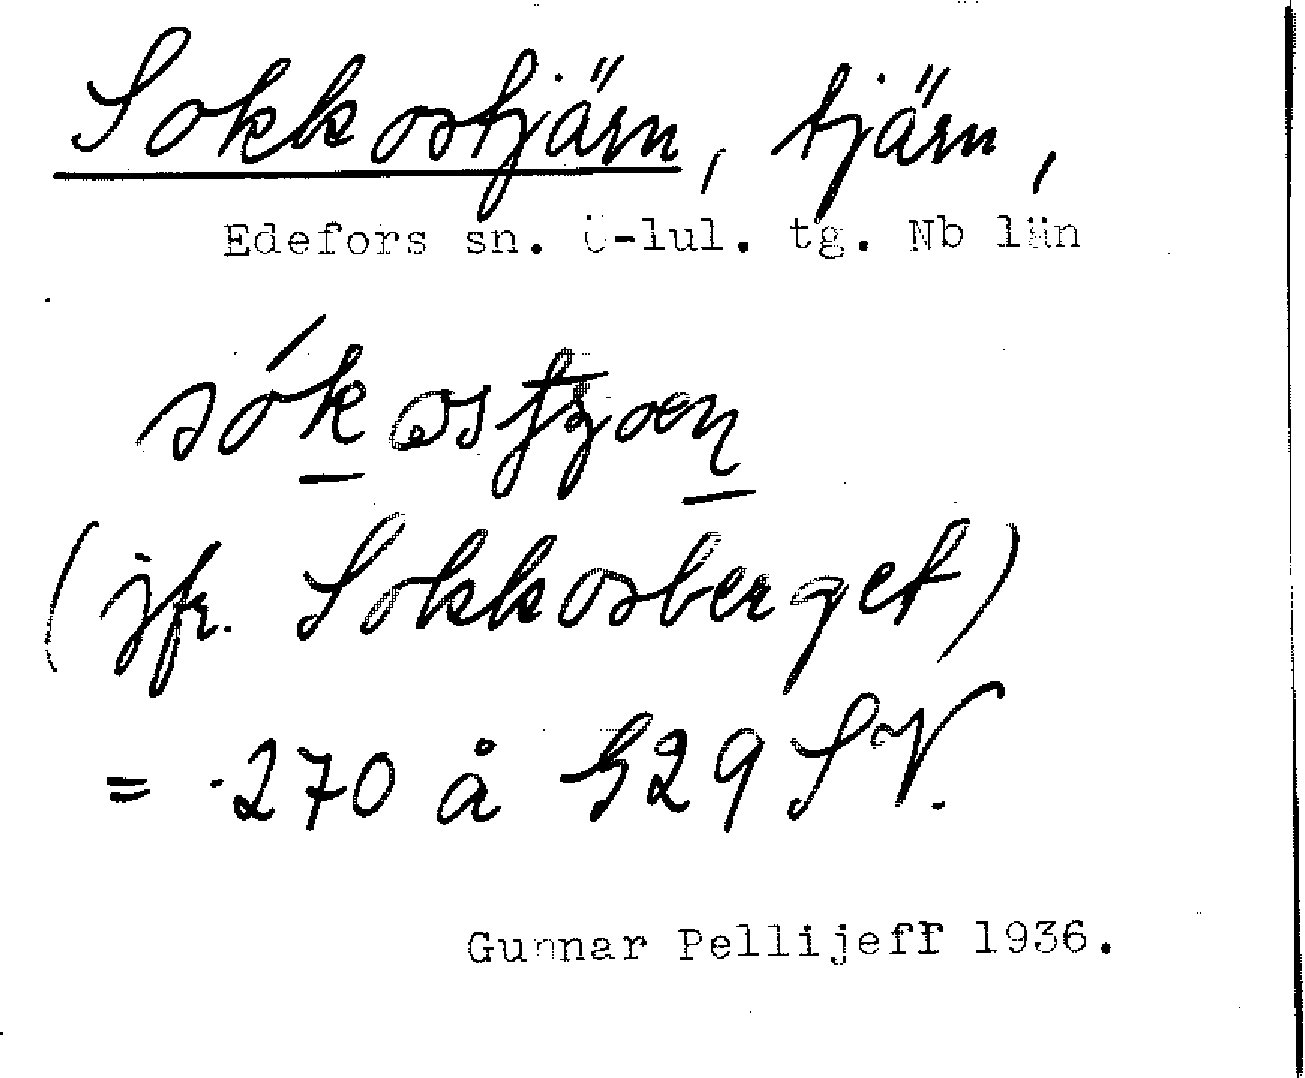 Sokkostjärn, tjärn,
Edefors sn. Ö-lul. tg. Nb län
(jfr. Sokkosberget)
= 270 å G29 SV.
Gunnar Pellijeff 1936.